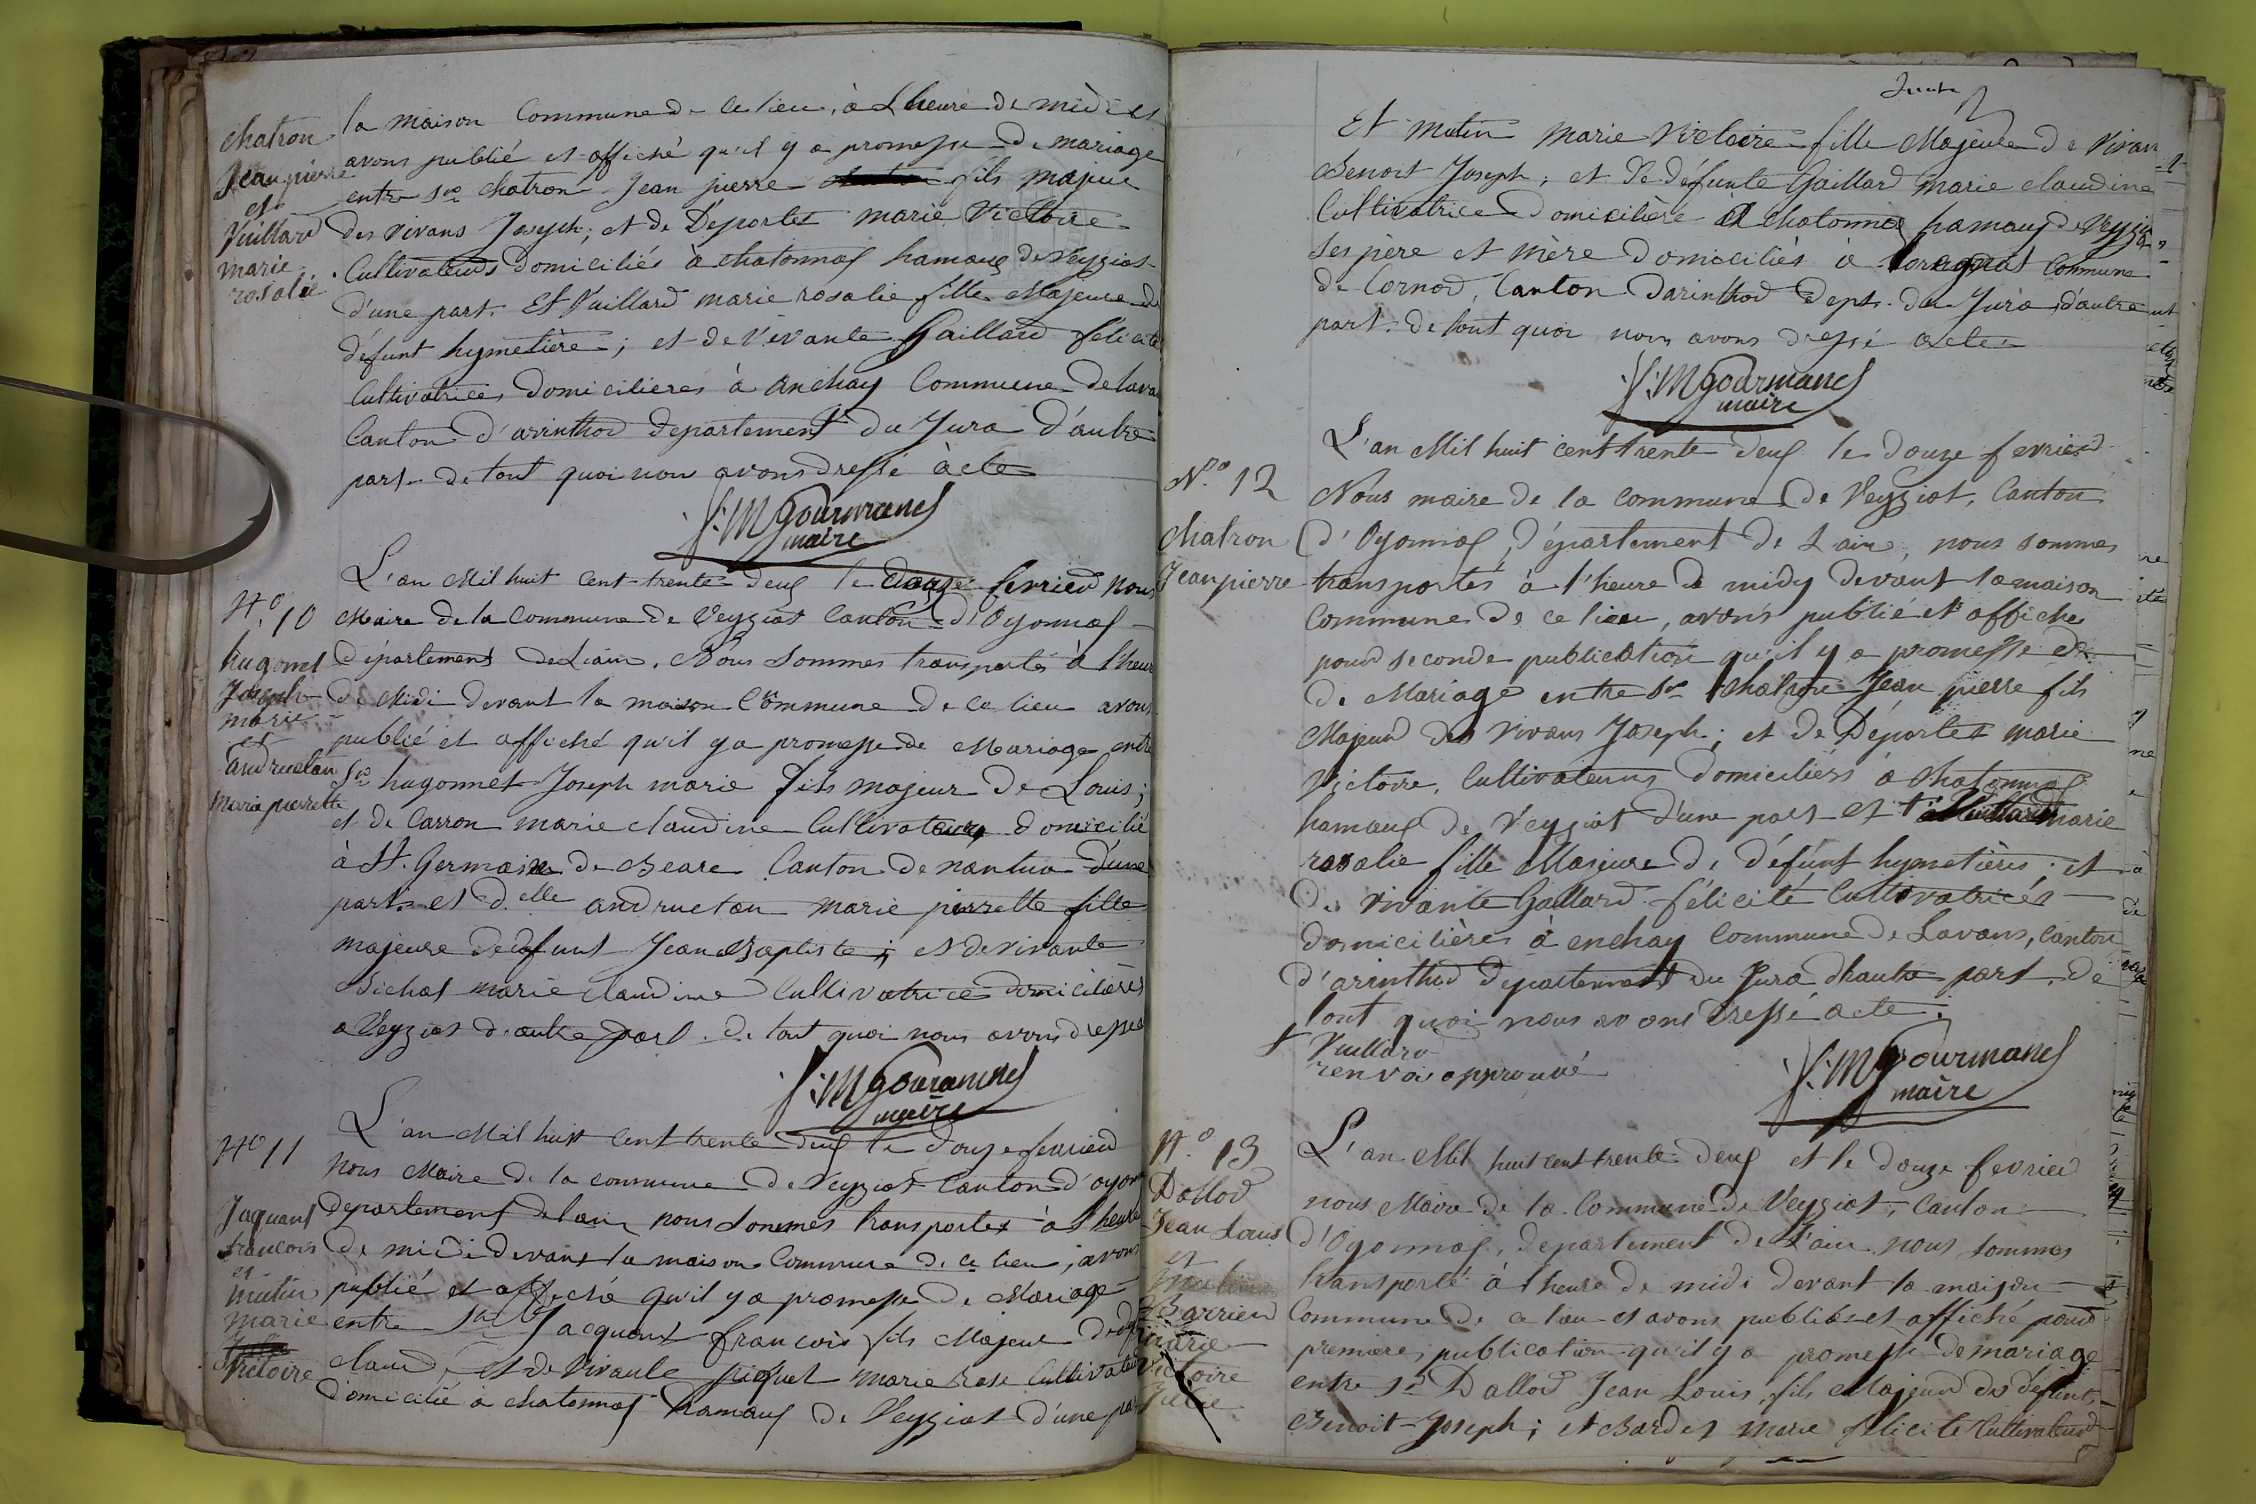 chatron
Jean pierre
et
Vuillard
marie
rosalie
la maison Commune de ce lieu, à L'heure de midi et
avons publié et affiché qu'il y a promesse de mariage
entre sr chatron Jean pierre fils majeur
des vivans Joseph; et de Déportes marie Victoire
Cultivateurs domiciliés à chatonnas hamaux de Veyziat
d'une part. Et Vuillard marie rosalie fille Majeure de
défunt hymetière; et de vivante Gaillard félicité
Cultivatrices domicilieres à anchay Commune de lava
Canton d'arinthod departement du Jura d'autre
part. de tout quoi nous avons dressé acte
J: M Gourmand
maire
No 10
hugonnet
Joseph
marie
et
andruetan
marie pierrette
L'an Mil huit cent trente deux le douze fevrier nous
Maire de la Commune de Veyziat Canton d'Oyonnas
département de L'ain. Nous sommes transportés à l'heure
de Midi devant la maison Commune de ce lieu avons
publié et affiché qu'il y a promesse de Mariage entre
Sr hugonnet Joseph marie fils majeur de Louis;
et de Carron marie claudine Cultivateurs domicilié
à St. Germain de Beare Canton de nantua d'une
part. et d.elle andruetan marie pierrette fille
majeure de defunt Jean Baptiste; et de vivante
Bichat marie claudine Cultivatrice domicilières
a Veyziat d'autre part. de tout quoi nous avons dressé
J: M Gourmand
maire
No 11
Jaquant
francois
et
mutin
marie
Victoire
L'an Mil huit Cent trente deux le douze fevrier
nous Maire de la commune de Veyziat Canton d'oyon
departement de lain nous sommes transportes à l'heure
de midi devant la maison Commune de ce lieu, avons
publié et affiché qu'il y a promesse de Mariage
entre Sr Jacquant francois fils Majeur de
claude, et de Vivante piquet marie rose Cultivateur
domicilié à chatonnas hamaux de Veyziat d'une par
Et mutin marie Victoire fille Majeure de Vivan
Benoit Joseph; et de défunte Gaillard marie claudine
Cultivatrice domicilière à chatonnas hamaux de Veyzia
Ses père et mère domiciliés à Commune
de Cornod, Canton Darinthod dept. du Jura d'autre
part. de tout quoi nous avons dressé acte
J: M Gourmand
maire
No 12
chatron
Jean pierre
L'an Mil huit cent trente deux le douze fevrier
Nous maire de la commune de Veyziat, Canton
d'Oyonnas, département de L'ain, nous sommes
transportés à l'heure de midy devant la maison
Commune de ce lieu, avons publié et affiche
pour seconde publication qu'il y a promesse de
de Mariage entre sr chatron Jean pierre fils
Majeur des vivans Joseph; et de Déportes marie
Victoire, Cultivateurs domiciliés a chatonnas
hamaux de Veyziat d'une part et marie
rosalie fille Majeure de défunt hymetières; et
de vivante Gallard félicité Cultivatrices
domicilières à enchay Commune de Lavans, Canton
d'arinthod departement du Jura d'hautre part. de
tout quoi nous avons dressé acte.
Vuillard
renvoi approuvé
J: M Gourmand
maire
No 13
Dallod
Jean Louis
et
Barrieu
marie
Victoire
Julie
L'an Mil huit cent trente deux et le douze fevrier
nous Maire de la Commune de Veyziat, Canton
d'Oyonnas, departement de L'ain nous sommes
transporté à l'heure de midi devant la maison
Commune de ce lieu et avons publiés et affiché pour
premiere publication qu'il y a promesse de mariage
entre sr Dallod Jean Louis, fils Majeur de défunt
Benoit Joseph; et Bardet Marie félicité Cultivateur